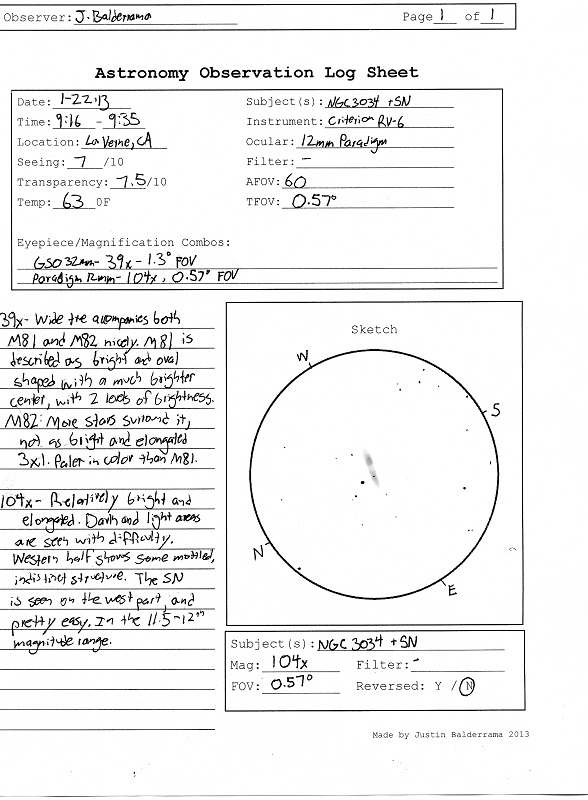 Observer: J. Balderrama Page 1 of 1
Astronomy Observation Log Sheet
Date: 1-22-13
Time: 9:16 - 9:35
Location: La Verne, CA
Seeing: 7 /10
Transparency: 7.5/10
Temp: 63 0F
Subject(s): NGC 3034 + SN
Instrument: Criterion RV-6
Ocular: 12mm Paradigm
Filter: -
AFOV: 60
TFOV: 0.57°
Eyepiece/Magnification Combos:
GSO 32mm- 39x - 1.3° FOV
Paradigm 12mm- 104x, 0.57° FOV
39x- Wide fre accompanies both
M81 and M82 nicely. M81 is
described as bright and oval
shaped with a much brighter
center, with 2 levels of brightness.
M82: More stars surround it,
not as bright and elongated
3x1. Paler in color than M81.
104x- Relatively bright and
elongated. Dark and light areas
are seen with difficulty.
Western half shows some mottled,
indistinct structure. The SN
is seen on the west part, and
pretty easy. In the 11.5-12th
magnitude range.
Sketch
W
S
N
E
Subject(s): NGC 3034 + SN
Mag: 104x Filter: -
FOV: 0.57° Reversed: Y / N
Made by Justin Balderrama 2013